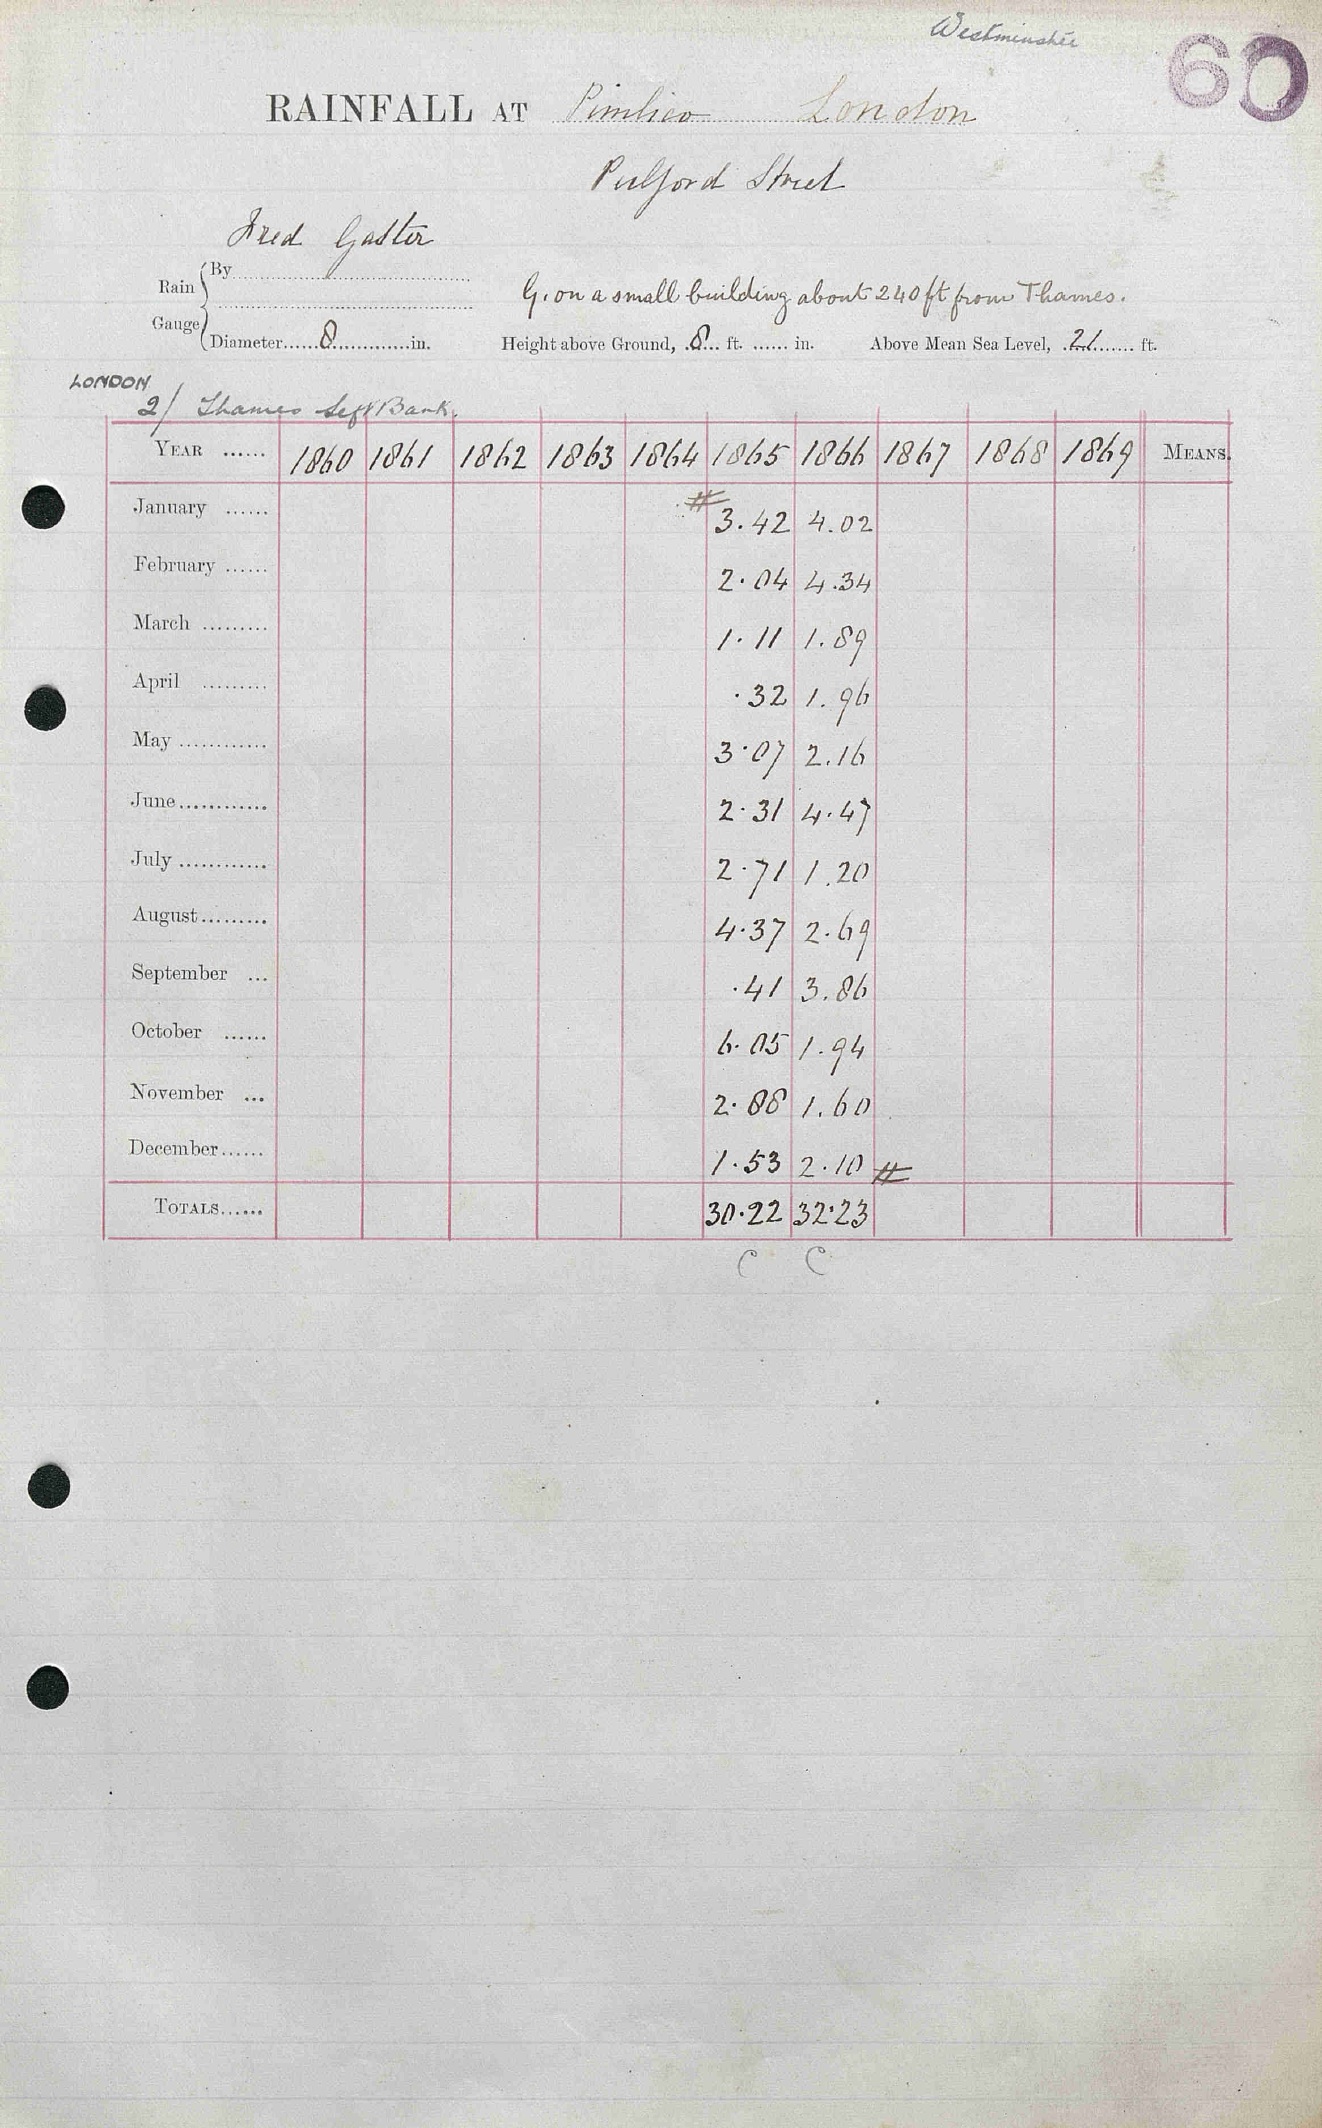 Westminster
60
RAINFALL AT Pimlico London
Pulford Street
Fred Gaster
Rain Gauge { By
G. on a small building about 240 ft from Thames.
Diameter......8.............in. Height above Ground, .8... ft. ...... in. Above Mean Sea Level, .21........ ft.
LONDON
2/ Thames Left Bank.
YEAR ...... 1860 1861 1862 1863 1864 1865 1866 1867 1868 1869 MEANS.
January ...... # 3.42 4.02
February ...... 2.04 4.34
March ......... 1.11 1.89
April ......... .32 1.96
May ............ 3.07 2.16
June............ 2.31 4.47
July ............ 2.71 1.20
August......... 4.37 2.69
September ... .41 3.86
October ...... 6.05 1.94
November ... 2.88 1.60
December...... 1.53 2.10 #
TOTALS...... 30.22 32.23
C C